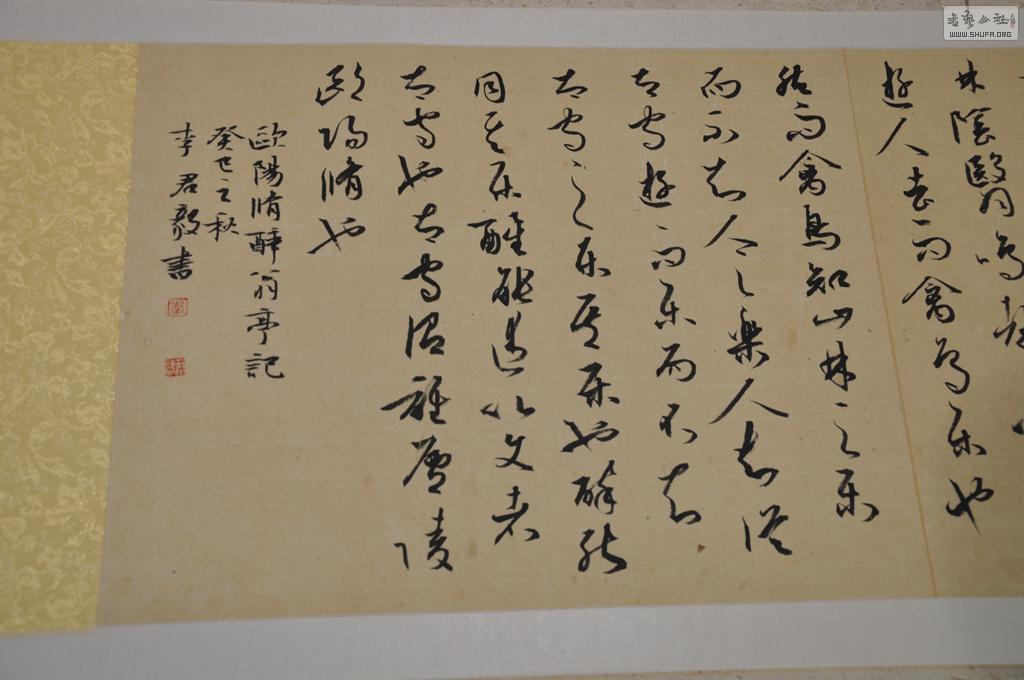 林陰翳鳴聲
遊人去而禽鳥樂也
然而禽鳥知山林之樂
而不知人之樂人知從
太守遊而樂而不知
太守之樂其樂也醉能
同其樂醒能述以文者
太守也太守謂誰廬陵
歐陽脩也
歐陽脩醉翁亭記
癸巳之秋
李君毅書
書藝公社
WWW.SHUFA.ORG